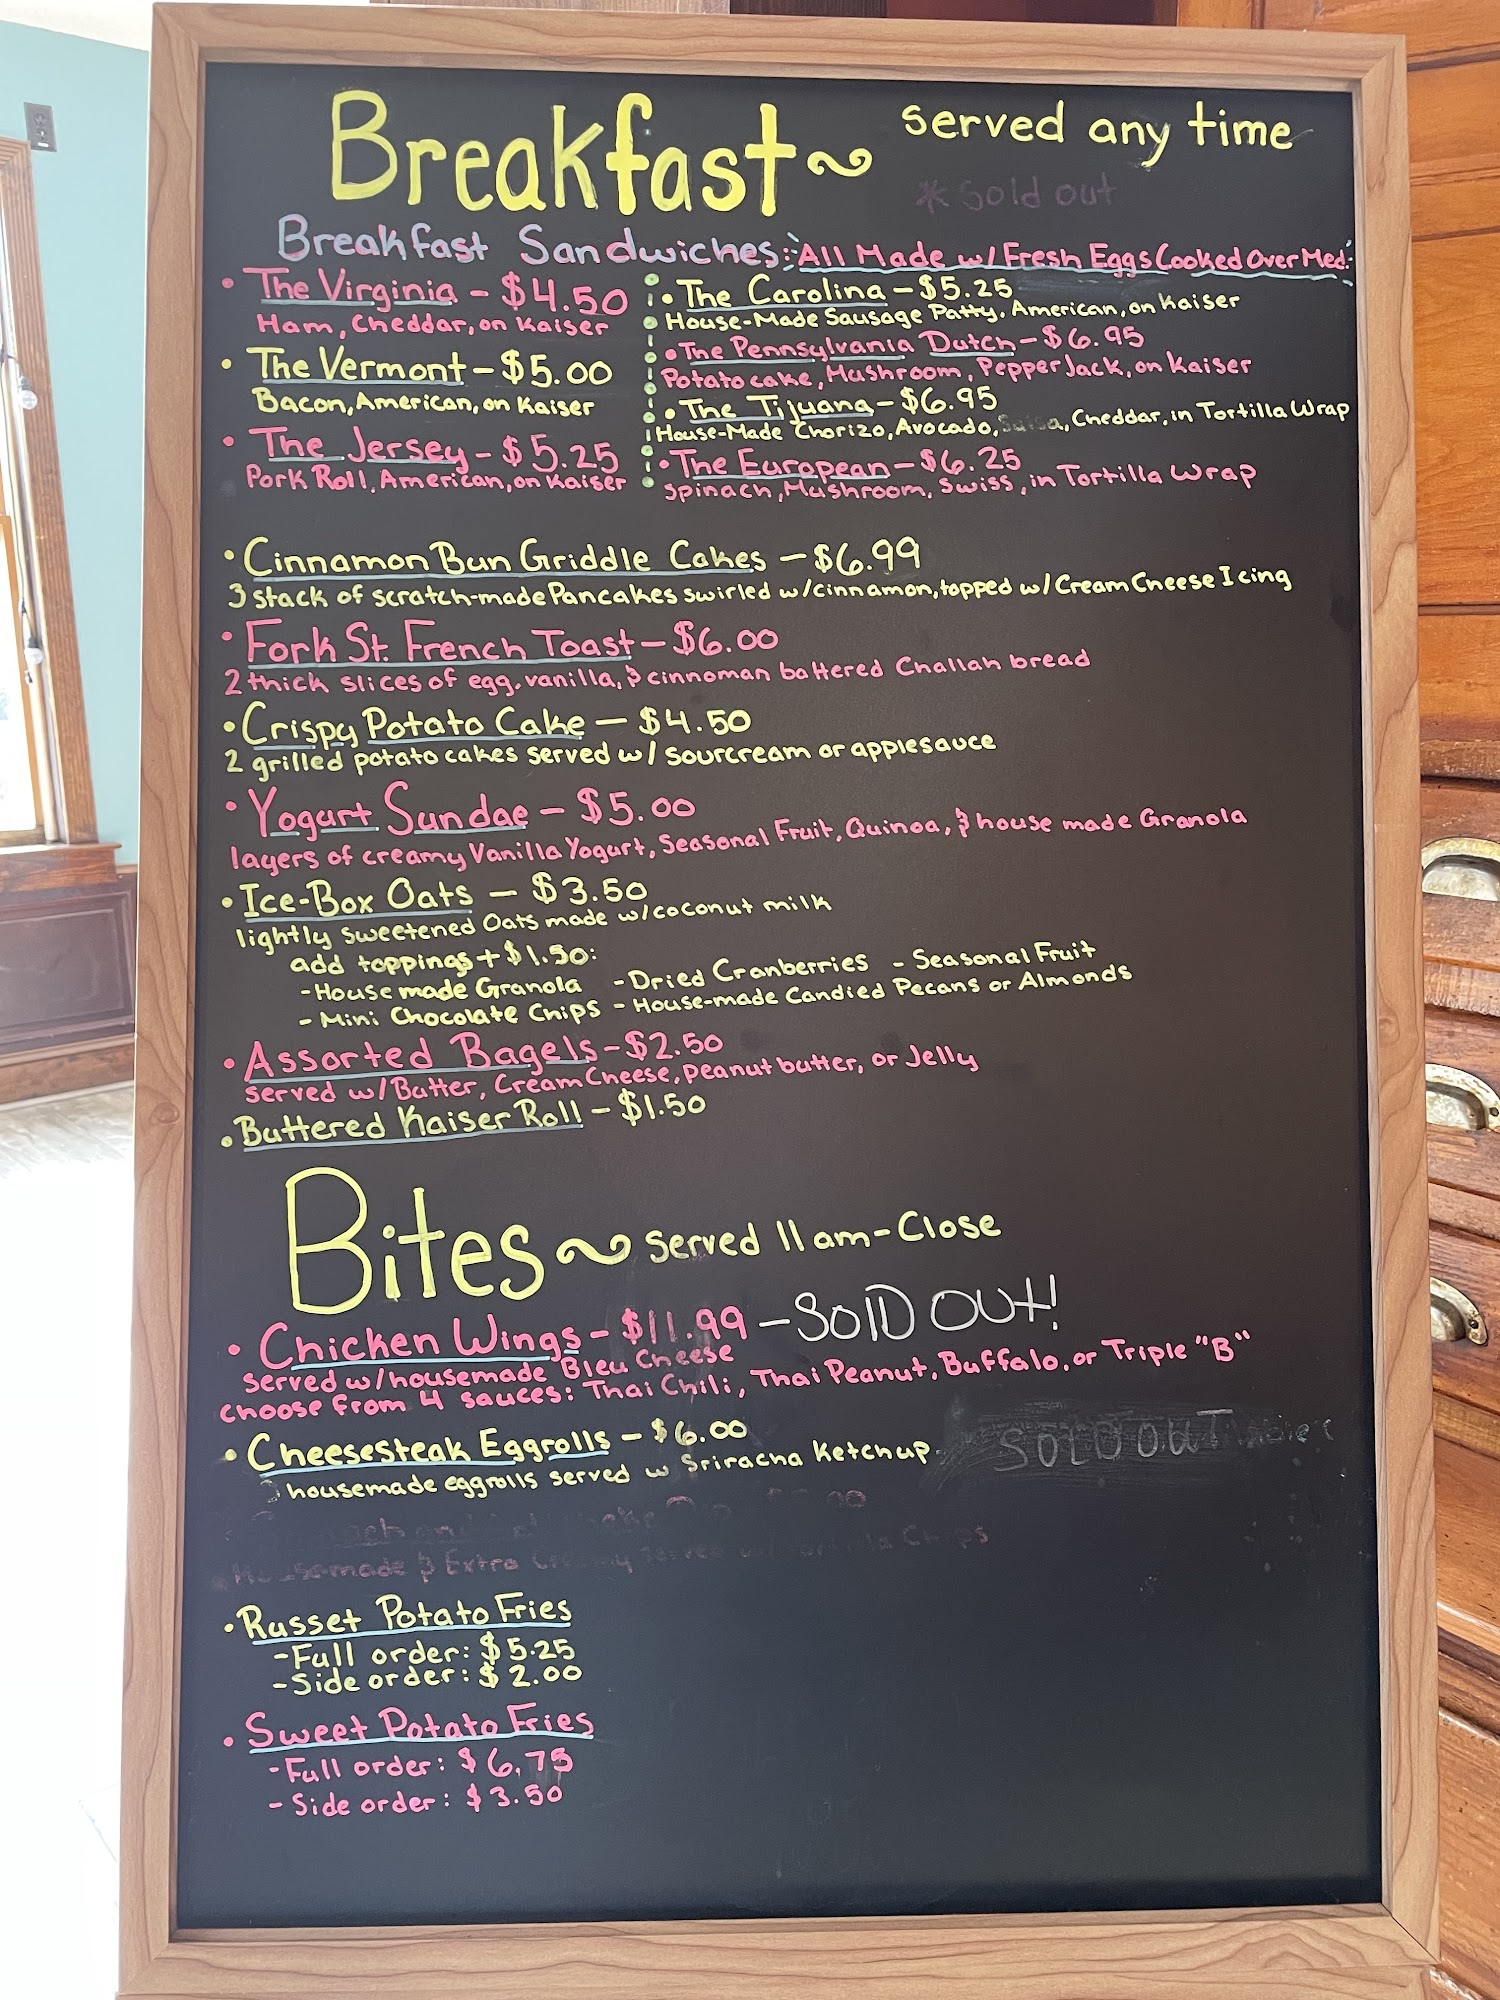 Breakfast~ served any time
* Sold out
Breakfast Sandwiches: All Made w/ Fresh Eggs Cooked Over Med.
• The Virginia - $4.50
Ham, Cheddar, on Kaiser
• The Vermont - $5.00
Bacon, American, on Kaiser
• The Jersey - $5.25
Pork Roll, American, on Kaiser
• The Carolina - $5.25
House-Made Sausage Patty, American, on Kaiser
• The Pennsylvania Dutch - $6.95
Potato cake, Mushroom, Pepper Jack, on Kaiser
• The Tijuana - $6.95
House-Made Chorizo, Avocado, Salsa, Cheddar, in Tortilla Wrap
• The European - $6.25
Spinach, Mushroom, Swiss, in Tortilla Wrap
• Cinnamon Bun Griddle Cakes - $6.99
3 stack of scratch-made Pancakes swirled w/cinnamon, topped w/ Cream Cheese Icing
• Fork St. French Toast - $6.00
2 thick slices of egg, vanilla, & cinnoman battered Challah bread
• Crispy Potato Cake - $4.50
2 grilled potato cakes served w/ sourcream or applesauce
• Yogurt Sundae - $5.00
layers of creamy Vanilla Yogurt, Seasonal Fruit, Quinoa, & house made Granola
• Ice-Box Oats - $3.50
lightly sweetened Oats made w/coconut milk
add toppings + $1.50:
- House made Granola - Dried Cranberries - Seasonal Fruit
- Mini Chocolate Chips - House-made Candied Pecans or Almonds
• Assorted Bagels - $2.50
served w/ Butter, Cream Cheese, peanut butter, or Jelly
• Buttered Kaiser Roll - $1.50
Bites~ served 11am-Close
• Chicken Wings - $11.99 - SOlD OUt!
served w/housemade Bleu Cheese
choose from 4 sauces: Thai Chili, Thai Peanut, Buffalo, or Triple "B"
• Cheesesteak Eggrolls - $6.00
housemade eggrolls served w Sriracha Ketchup. SOLD OUT
Housemade & Extra Creamy served w/ Tortilla Chips
• Russet Potato Fries
- Full order: $5.25
- Side order: $2.00
• Sweet Potato Fries
- Full order: $6.75
- Side order: $3.50